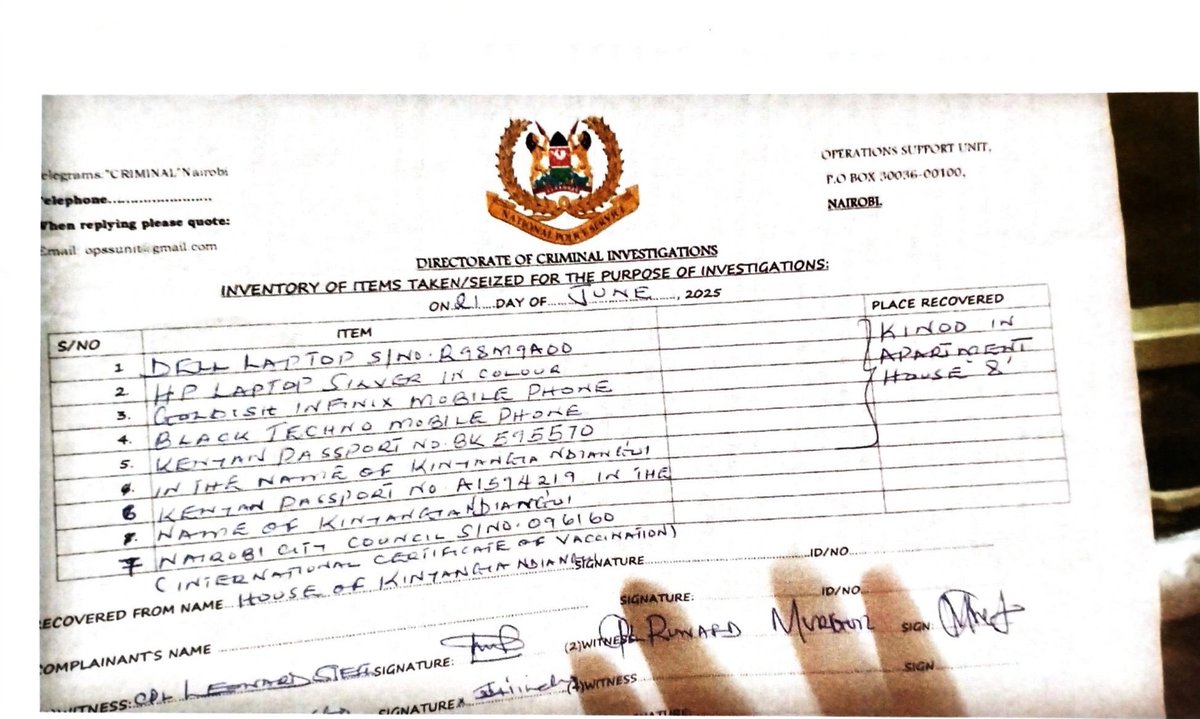 elegrams."CRIMINAL"Nairobi
elephone
When replying please quote:
Email: opssunit@gmail.com
NATIONAL POLICE SERVICE
OPERATIONS SUPPORT UNIT,
P.O BOX 30036-00100,
NAIROBI.
DIRECTORATE OF CRIMINAL INVESTIGATIONS
INVENTORY OF ITEMS TAKEN/SEIZED FOR THE PURPOSE OF INVESTIGATIONS:
ON 21 DAY OF JUNE, 2025
S/NO ITEM PLACE RECOVERED
1 DELL LAPTOP S/NO. R98M9A00
2. HP LAPTOP SILVER IN COLOUR
3. GOLDISH INFINIX MOBILE PHONE
4. BLACK TECHNO MOBILE PHONE
5. KENYAN PASSPORT NO. BK E95570
IN THE NAME OF KINYANGIA NDIANGUI
6 KENYAN PASSPORT NO A1574219 IN THE
NAME OF KINYANGIA NDIANGUI
7 NAIROBI CITY COUNCIL S/NO. 096160
(INTERNATIONAL CERTIFICATE OF VACCINATION)
IN
APARTMENT
HOUSE '8'
RECOVERED FROM NAME HOUSE OF KINYANGIA SIGNATURE ID/NO
COMPLAINANT'S NAME SIGNATURE: ID/NO
WITNESS: CPL LEONARD SIGNATURE: (2)WITNESS MURGOR SIGN:
SIGNATURE WITNESS SIGN
SIGNATURE: